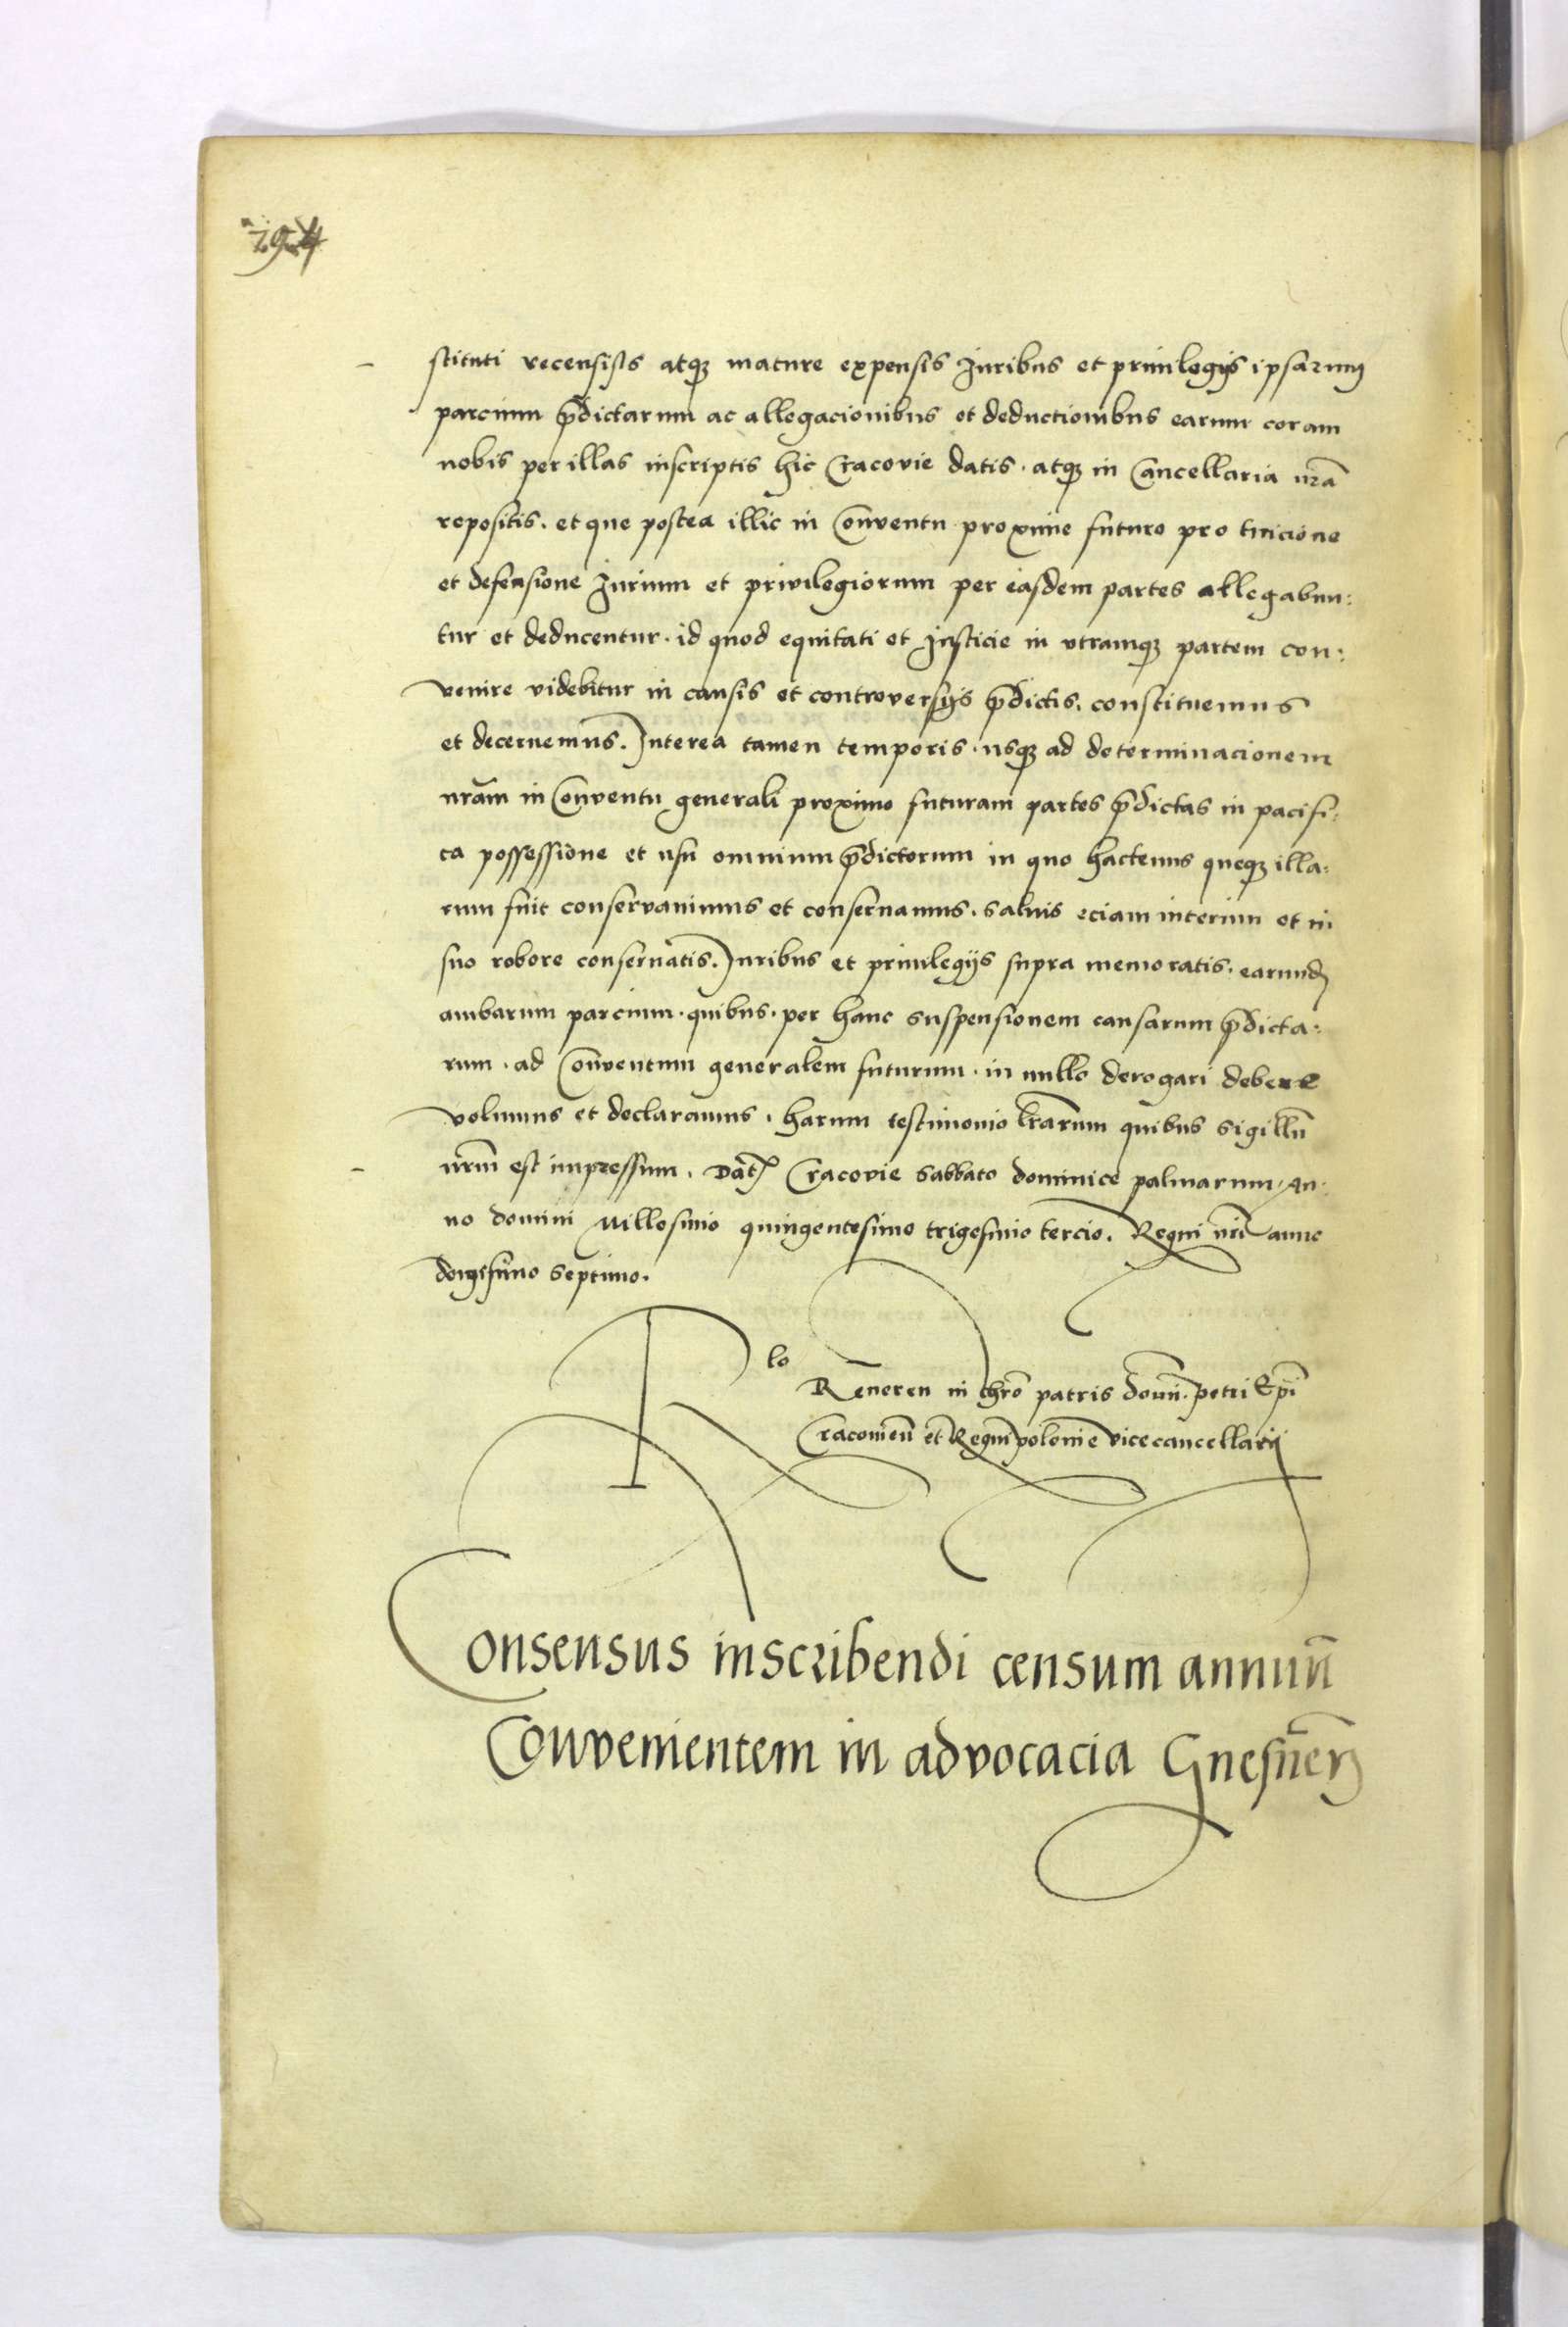 stituti recensitis atq3 mature expensis Juribus et privilegijs ipsarum
parcium p̄dictarum ac allegacionibus et deductionibus earum coram
nobis per illas inscriptis hic Cracovie datis. atq3 in Cancellaria nr̄a
repositis. et que postea illic in Conventu proxime futuro pro tuicione
et defensione Jurium et privilegiorum per easdem partes allegabun:
tur et deducentur. id quod equitati et Justicie in utramq3 partem con:
venire videbitur in causis et controversijs p̄dictis. constituemus
et decernemus. Interea tamen temporis. usq3 ad determinacionem
nr̄am in Conventu generali proximo futuram partes p̄dictas in pacifi:
ca possessione et usu omnium p̄dictorum in quo hactenus queq3 illa:
rum fuit conservavimus et conservamus. salvis eciam interim et in
suo robore conservatis. Juribus et privilegijs supra memoratis. earund
ambarum parcium. quibus. per hanc suspensionem causarum p̄dicta:
rum. ad Conventum generalem futurum. in nullo derogari debere
volumus et declaramus. harum testimonio lr̄arum quibus sigillū
nr̄m est impressum. Dat̄ Cracovie Sabbato dominice palmarum. An:
no domini Millesimo quingentesimo trigesimo tercio. Regni nr̄i anno
vigesimo septimo.
Rlo
R̄everen in chr̄o patris domī. petri Ep̄i
Cracovieñ et Regni polonie vicecancellarij
Consensus inscribendi censum annuū
Convenientem in advocacia Gnesneñ